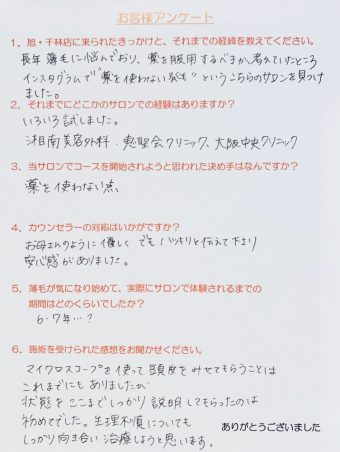 お客様アンケート
1．旭・千林店に来られたきっかけと、それまでの経緯を教えてください。
長年薄毛に悩んでおり、薬を服用するべきか考えていたところ
インスタグラムで"薬を使わない発毛"というこちらのサロンを見つけ
ました。
2．それまでにどこかのサロンでの経験はありますか？
いろいろ試しました。
湘南美容外科、恵聖会クリニック、大阪中央クリニック
3．当サロンでコースを開始されようと思われた決め手はなんですか？
薬を使わない点、
4．カウンセラーの対応はいかがですか？
お母さんのように優しく でも ハッキリと伝えて下さり
安心感がありました。
5．薄毛が気になり始めて、実際にサロンで体験されるまでの
期間はどのくらいでしたか？
6・7年…？
6．施術を受けられた感想をお聞かせください。
マイクロスコープを使って頭皮をみせてもらうことは
これまでにもありましたが
状態をここまでしっかり説明してもらったのは
初めてでした。生理不順についても
しっかり向き合い治療しようと思います。
ありがとうございました